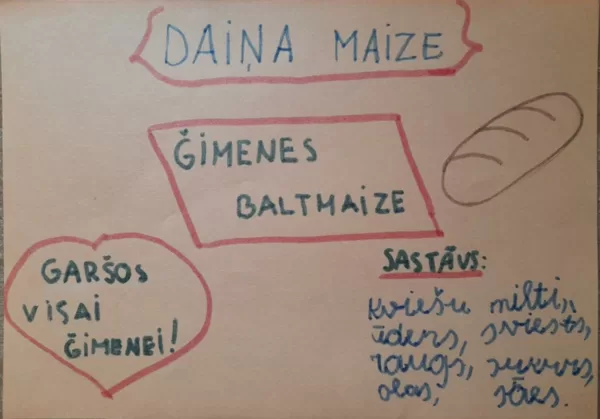 DAIŅA MAIZE
ĢIMENES
BALTMAIZE
GARŠOS
VISAI
ĢIMENEI!
SASTĀVS:
kviešu milti,
ūdens, sviests,
raugs, cukurs,
olas, sāls.